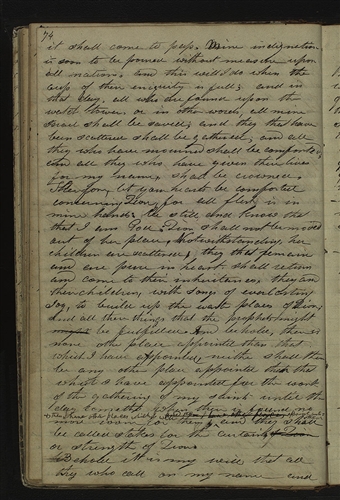 74
it shall come to pass. Mine indignation
is soon to be poured without measure upon
all nations, and this will I do when the
cup of their iniquity is full; and in
that day, all who are found upon the
watch tower, or in other words, all mine
Israel shall be saved; and they that have
been scattered shall be gathered; and all
they who have mourned shall be comforted;
and all they who have given their lives
for my name, shall be crowned.
Therefore, let your hearts be comforted
concerning Zion, for all flesh is in
mine hands: be still and know that
that I am God. Zion shall not be moved
out of her place, Notwithstanding her
children are scattered; they that remain
and are pure in heart shall return
and come to their inheritances; they and
their children, with songs of everlasting
Joy, to build up the waste places of Zion,
And all these things that the prophets might
be fulfilled. And behold, there is
none other place appointed than that
which I have appointed, neither shall there
be any other place appointed than that
which I have appointed for the work
of the gathering of my saints until the
day cometh when there is found no
more room for them; and they shall
be called Stakes for the curtains
or strength of Zion.
Behold it is my will that all
they who call on my name and